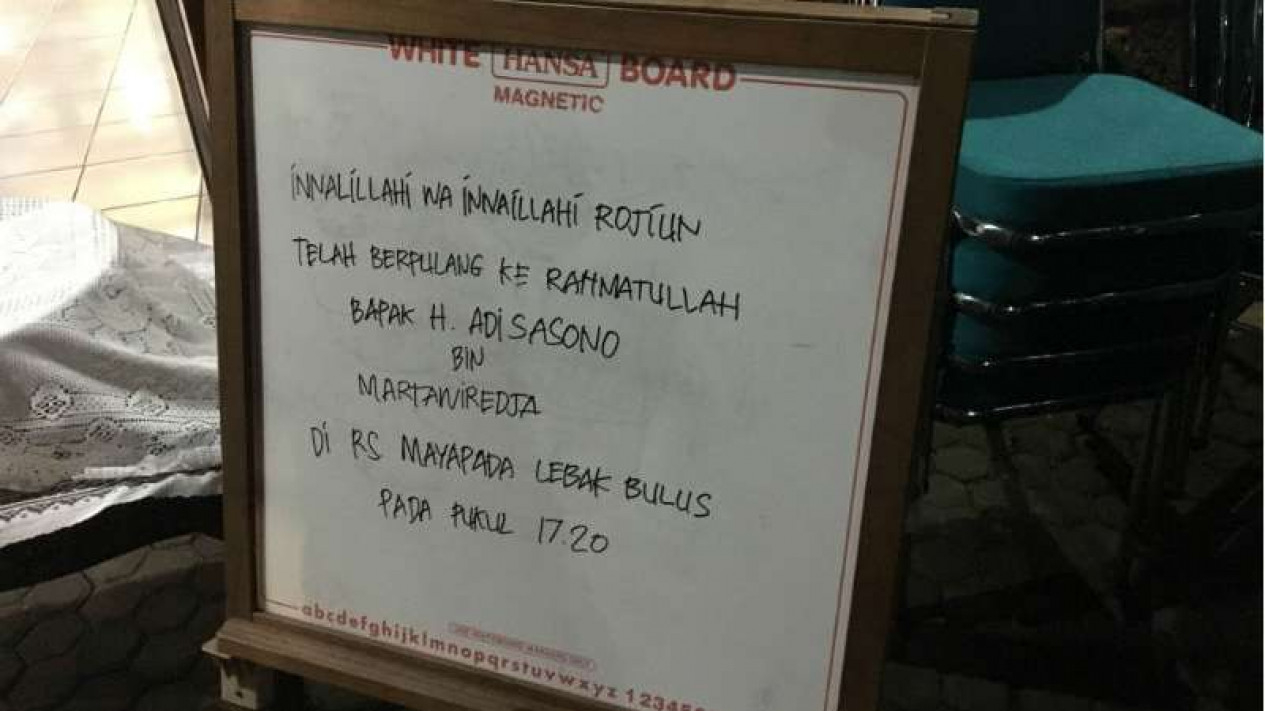 WHITE HANSA BOARD
MAGNETIC
INNALILLAHI WA INNAILLAHI ROJIUN
TELAH BERPULANG KE RAHMATULLAH
BAPAK H. ADI SASONO
BIN
MARTAWIREDJA
DI RS MAYAPADA LEBAK BULUS
PADA PUKUL 17.20
abcdefghijklmnopqrstuvwxyz 123456